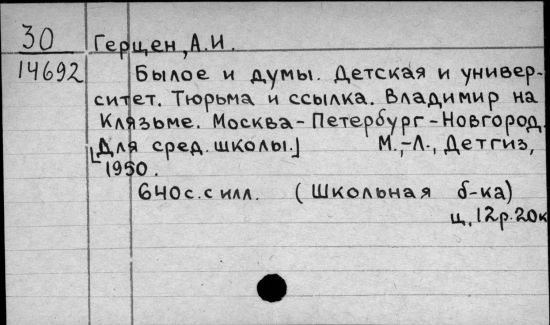 30 Герцен, А.И.
14692 Былое и думы. Детская и универ-
ситет. Тюрьма и ссылка. Владимир на
Клязьме. Москва-Петербург-Новгород.
[Для сред. школы.] М.,-Л., Детгиз,
1950.
640с. с илл. (Школьная б-ка)
ц. 12р. 20к